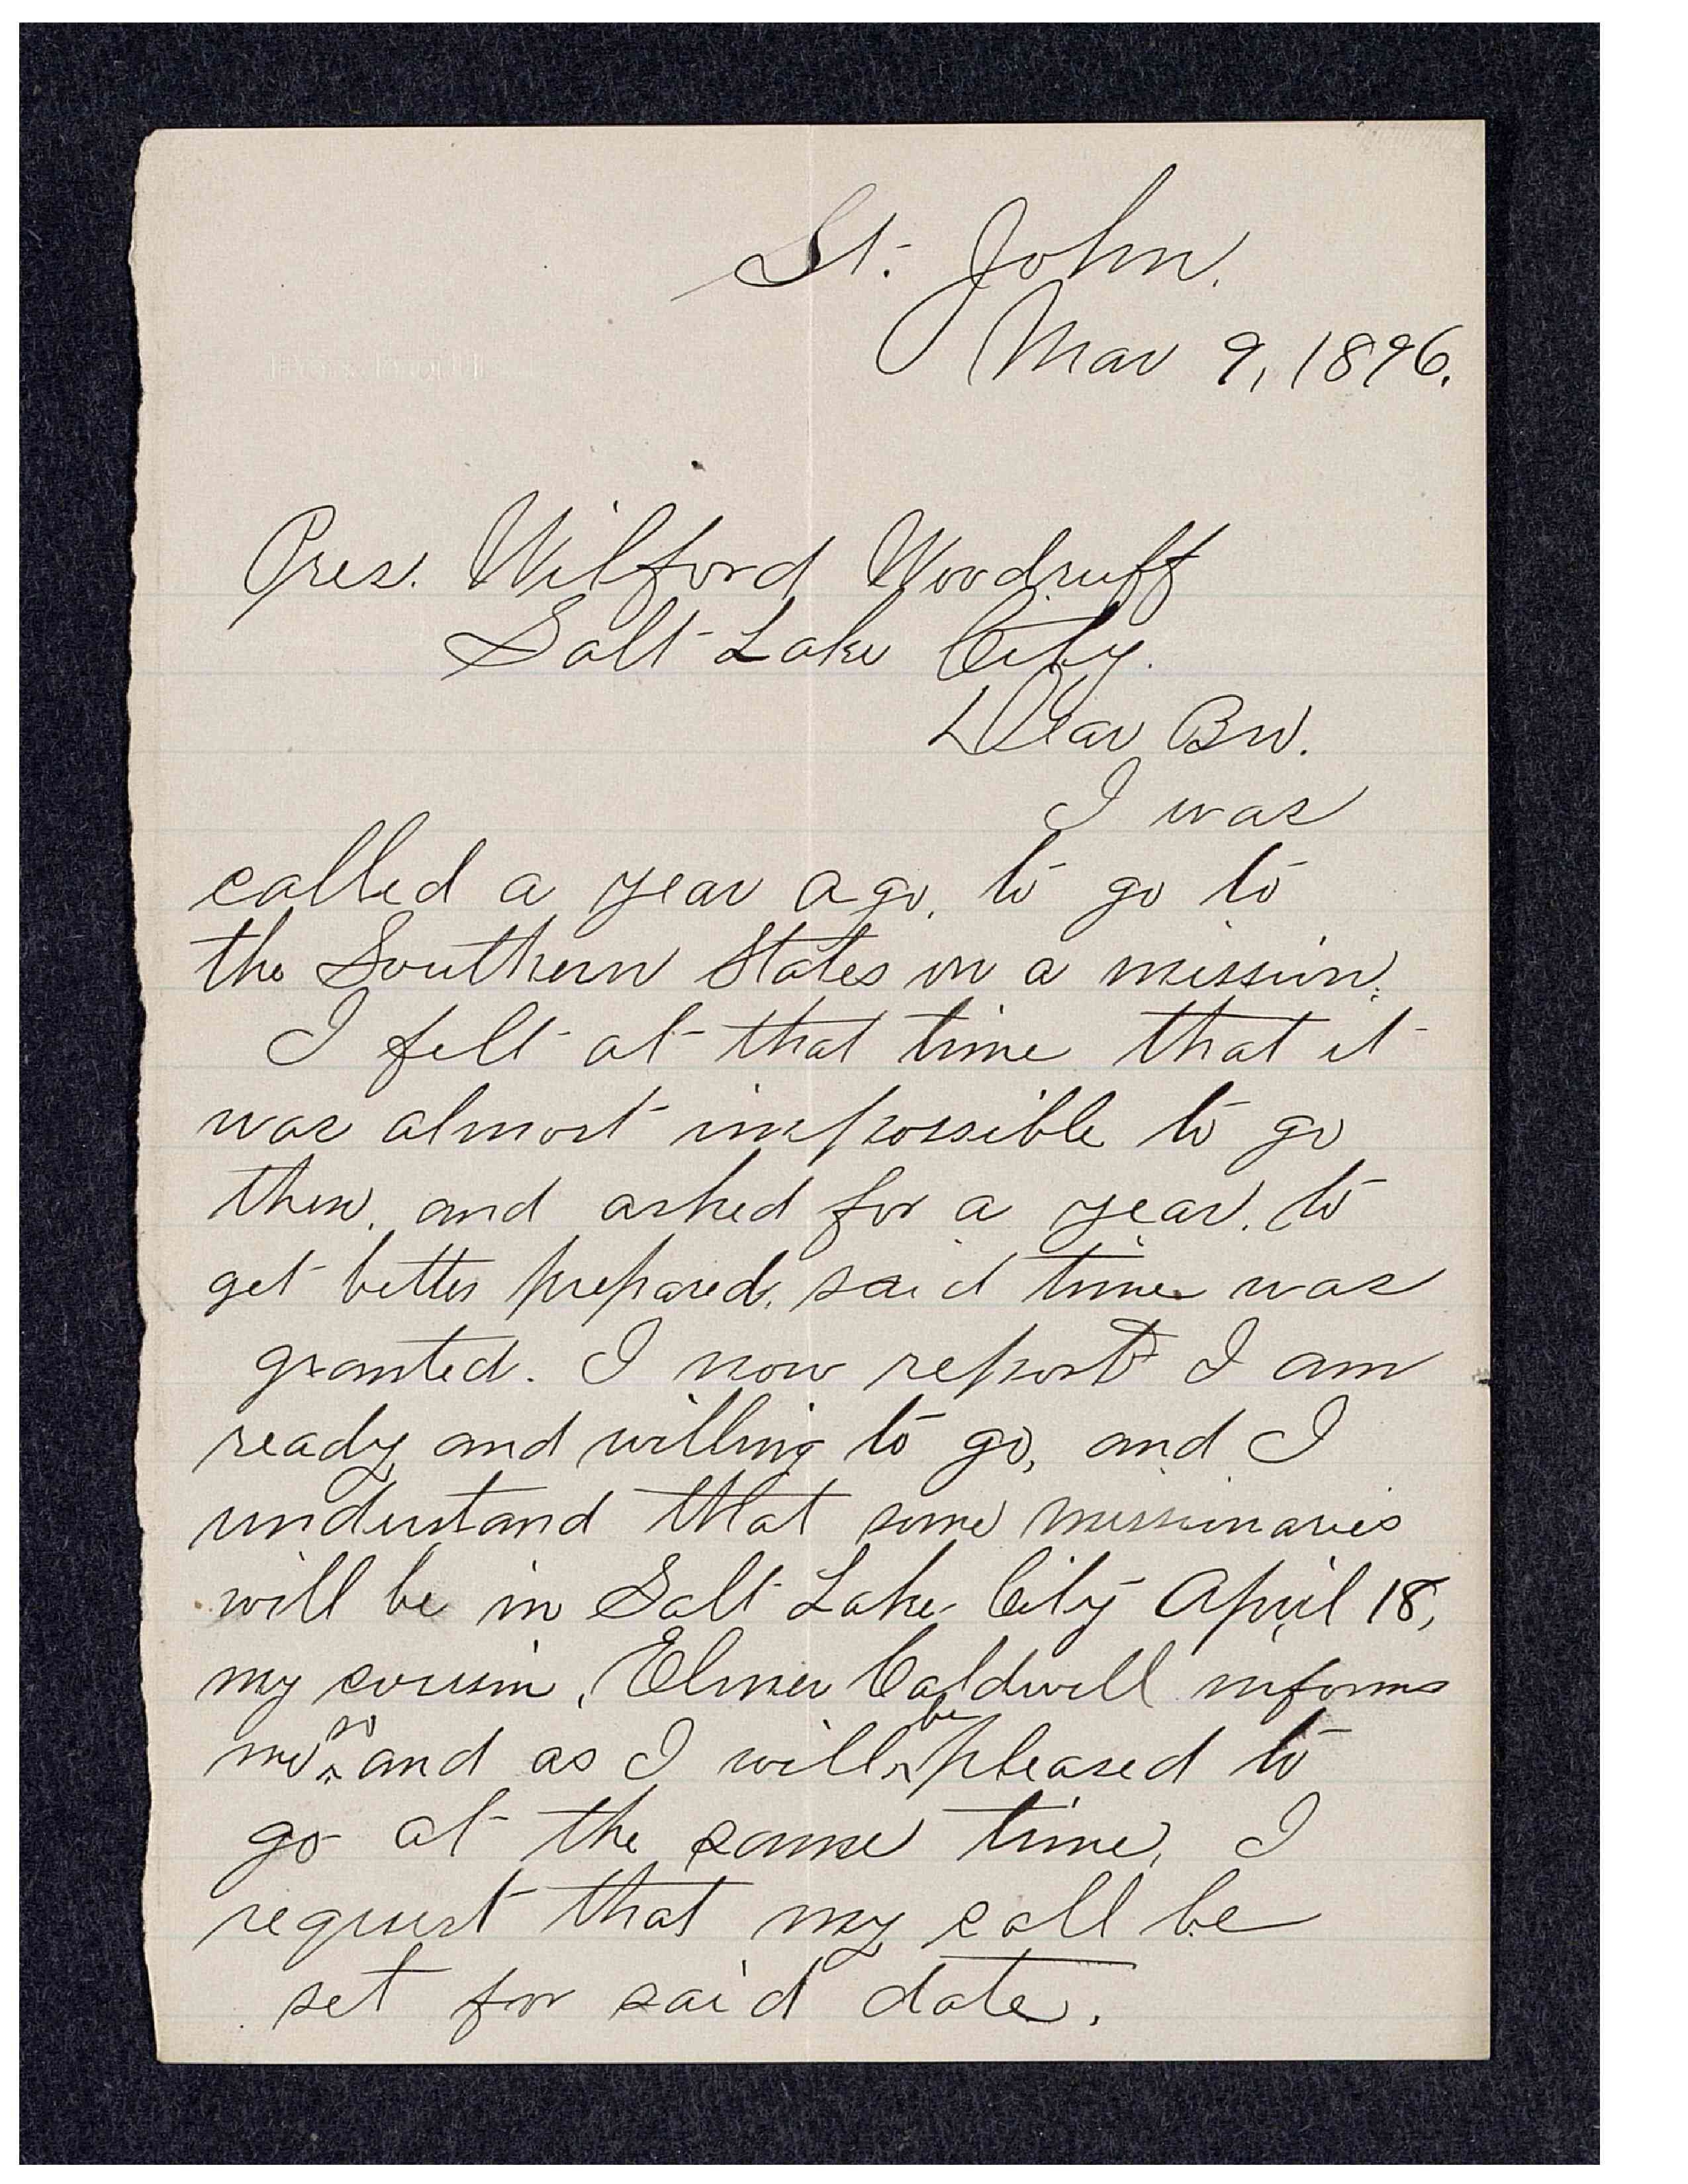 St. John.
Mar 9, 1896.
Pres. Wilford Woodruff
Salt Lake City.
Dear Bro.
I was
called a year ago, to go to
the Southern States on a mission.
I felt at that time that it
was almost impossible to go
then, and asked for a year, to
get better prepared, said time was
granted. I now report I am
ready and willing to go, and I
understand that some missionaries
will be in Salt Lake City April 18,
my cousin, Elmer Caldwell informs
me so and as I will be pleased to
go at the same time, I
request that my call be
set for said date.